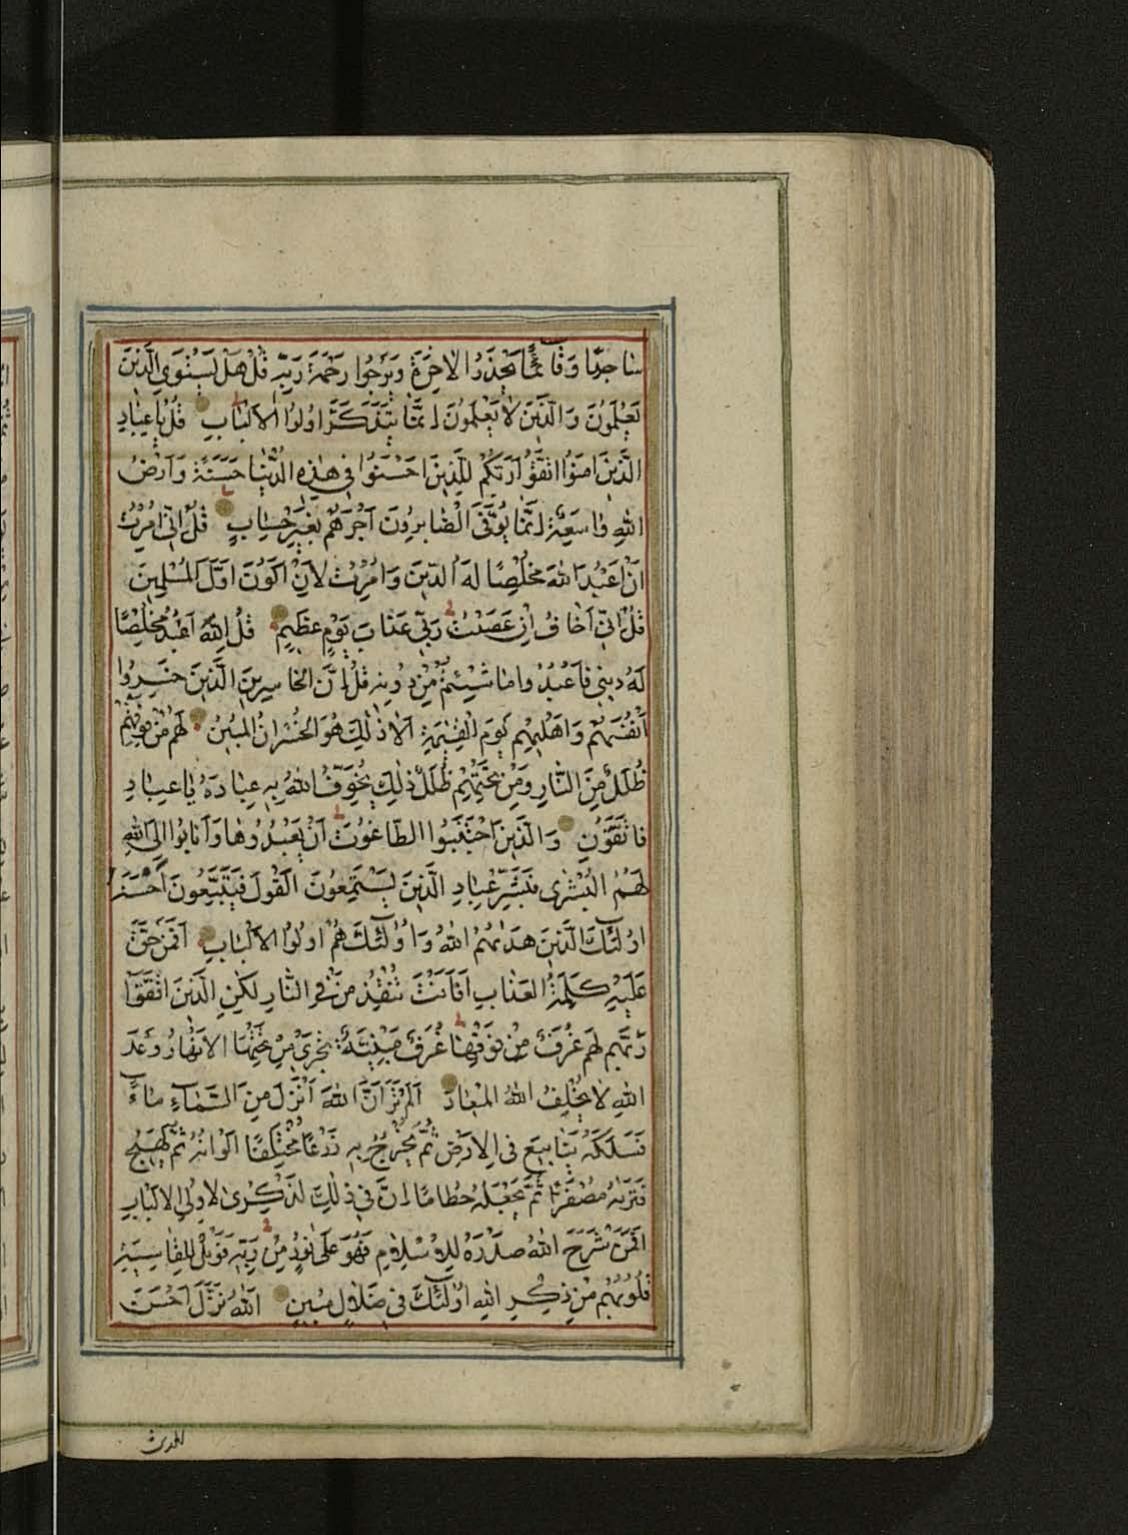 سَاجِدًا وَقَائِمًا يَحْذَرُ الْاٰخِرَةَ وَيَرْجُوا رَحْمَةَ رَبِّهِ قُلْ هَلْ يَسْتَوِي الَّذِينَ
يَعْلَمُونَ وَالَّذِينَ لَا يَعْلَمُونَ اِنَّمَا يَتَذَكَّرُ اُولُوا الْاَلْبَابِ قُلْ يَا عِبَادِ
الَّذِينَ اٰمَنُوا اتَّقُوا رَبَّكُمْ لِلَّذِينَ اَحْسَنُوا فِي هٰذِهِ الدُّنْيَا حَسَنَةٌ وَاَرْضُ
اللهِ وَاسِعَةٌ اِنَّمَا يُوَفَّى الصَّابِرُونَ اَجْرَهُمْ بِغَيْرِ حِسَابٍ قُلْ اِنِّي اُمِرْتُ
اَنْ اَعْبُدَ اللهَ مُخْلِصًا لَهُ الدِّينَ وَاُمِرْتُ لِاَنْ اَكُونَ اَوَّلَ الْمُسْلِمِينَ
قُلْ اِنِّي اَخَافُ اِنْ عَصَيْتُ رَبِّي عَذَابَ يَوْمٍ عَظِيمٍ قُلِ اللهَ اَعْبُدُ مُخْلِصًا
لَهُ دِينِي فَاعْبُدُوا مَا شِئْتُمْ مِنْ دُونِهِ قُلْ اِنَّ الْخَاسِرِينَ الَّذِينَ خَسِرُوا
اَنْفُسَهُمْ وَاَهْلِيهِمْ يَوْمَ الْقِيٰمَةِ اَلَا ذٰلِكَ هُوَ الْخُسْرَانُ الْمُبِينُ لَهُمْ مِنْ فَوْقِهِمْ
ظُلَلٌ مِنَ النَّارِ وَمِنْ تَحْتِهِمْ ظُلَلٌ ذٰلِكَ يُخَوِّفُ اللهُ بِهِ عِبَادَهُ يَا عِبَادِ
فَاتَّقُونِ وَالَّذِينَ اجْتَنَبُوا الطَّاغُوتَ اَنْ يَعْبُدُوهَا وَاَنَابُوا اِلَى اللهِ
لَهُمُ الْبُشْرٰى فَبَشِّرْ عِبَادِ الَّذِينَ يَسْتَمِعُونَ الْقَوْلَ فَيَتَّبِعُونَ اَحْسَنَهُ
اُولٰئِكَ الَّذِينَ هَدٰيهُمُ اللهُ وَاُولٰئِكَ هُمْ اُولُوا الْاَلْبَابِ اَفَمَنْ حَقَّ
عَلَيْهِ كَلِمَةُ الْعَذَابِ اَفَاَنْتَ تُنْقِذُ مَنْ فِي النَّارِ لٰكِنِ الَّذِينَ اتَّقَوْا
رَبَّهُمْ لَهُمْ غُرَفٌ مِنْ فَوْقِهَا غُرَفٌ مَبْنِيَّةٌ تَجْرِي مِنْ تَحْتِهَا الْاَنْهَارُ وَعْدَ
اللهِ لَا يُخْلِفُ اللهُ الْمِيعَادَ اَلَمْ تَرَ اَنَّ اللهَ اَنْزَلَ مِنَ السَّمَاءِ مَاءً
فَسَلَكَهُ يَنَابِيعَ فِي الْاَرْضِ ثُمَّ يُخْرِجُ بِهِ زَرْعًا مُخْتَلِفًا اَلْوَانُهُ ثُمَّ يَهِيجُ
فَتَرٰيهُ مُصْفَرًّا ثُمَّ يَجْعَلُهُ حُطَامًا اِنَّ فِي ذٰلِكَ لَذِكْرٰى لِاُولِي الْاَلْبَابِ
اَفَمَنْ شَرَحَ اللهُ صَدْرَهُ لِلْاِسْلَامِ فَهُوَ عَلٰى نُورٍ مِنْ رَبِّهِ فَوَيْلٌ لِلْقَاسِيَةِ
قُلُوبُهُمْ مِنْ ذِكْرِ اللهِ اُولٰئِكَ فِي ضَلَالٍ مُبِينٍ اَللهُ نَزَّلَ اَحْسَنَ
الحديث